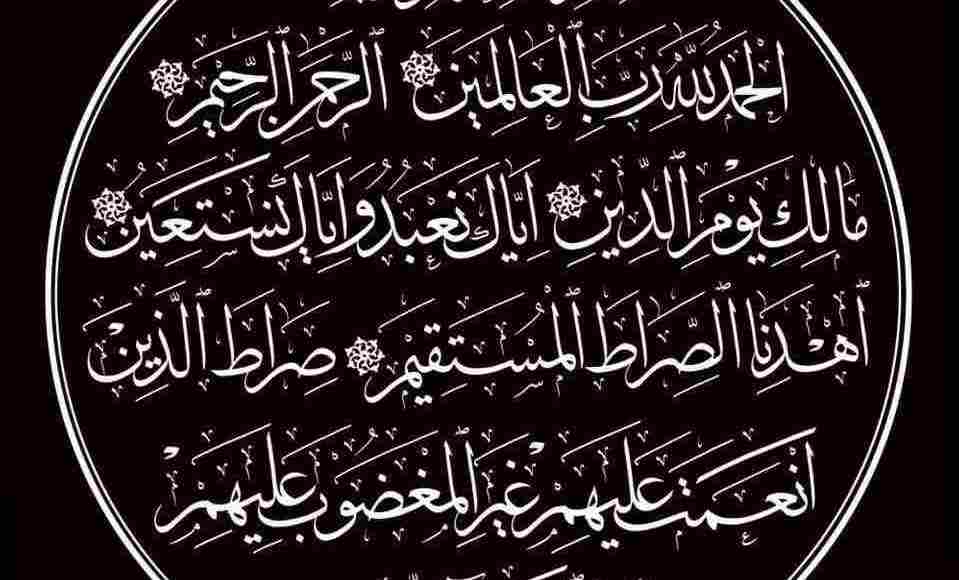 الْحَمْدُ لِلَّهِ رَبِّ الْعَالَمِينَ ۞ الرَّحْمَنِ الرَّحِيمِ ۞
مَالِكِ يَوْمِ الدِّينِ ۞ إِيَّاكَ نَعْبُدُ وَإِيَّاكَ نَسْتَعِينُ ۞
اهْدِنَا الصِّرَاطَ الْمُسْتَقِيمَ ۞ صِرَاطَ الَّذِينَ
أَنْعَمْتَ عَلَيْهِمْ غَيْرِ الْمَغْضُوبِ عَلَيْهِمْ